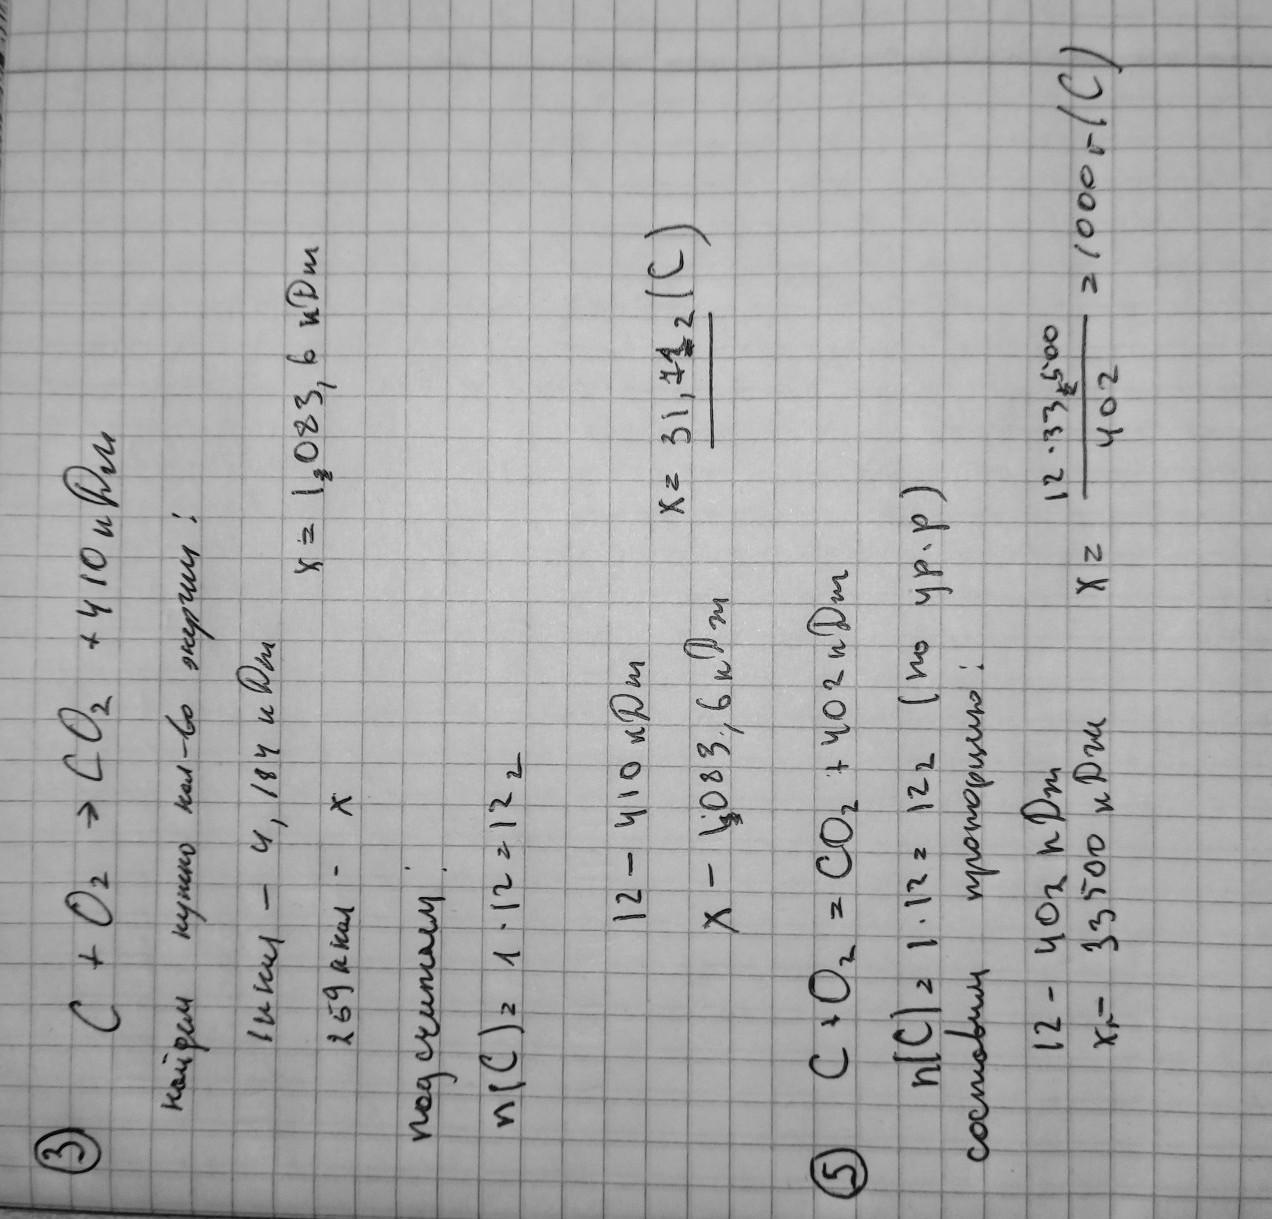 ③ C + O₂ → CO₂ + 410 кДж
найдем нужно кол-во энергии:
1 ккал – 4,184 кДж
259 ккал - x
x = 1083,6 кДж
подсчитаем:
n(C) = 1 · 12 = 12 г
12 – 410 кДж
x – 1083,6 кДж
x = 31,71 г (C)
⑤ C + O₂ = CO₂ + 402 кДж
n(C) = 1 · 12 = 12 г (по ур. р)
составим пропорцию:
12 - 402 кДж
x г – 33500 кДж
x = 12 · 33500 / 402 = 1000 г (C)